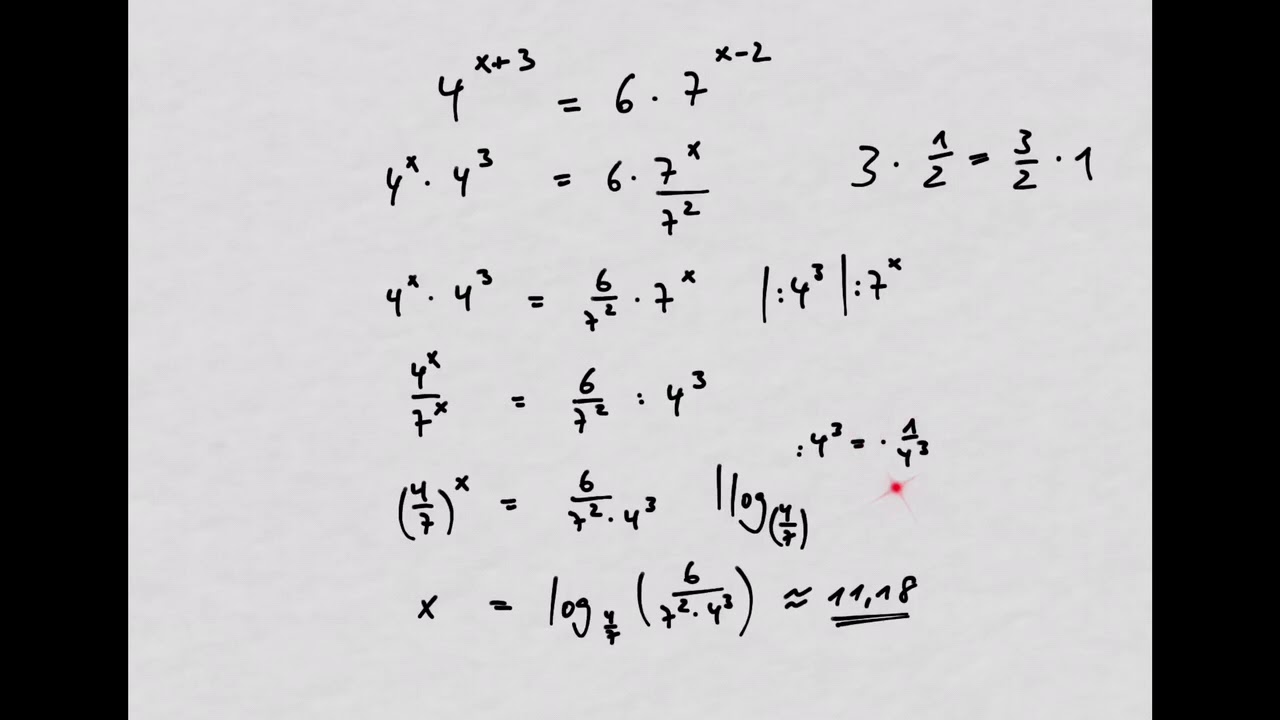 4^{x+3} = 6 · 7^{x-2}
4^x · 4^3 = 6 · \frac{7^x}{7^2}
3 · \frac{1}{2} = \frac{3}{2} · 1
4^x · 4^3 = \frac{6}{7^2} · 7^x |:4^3 |:7^x
\frac{4^x}{7^x} = \frac{6}{7^2} : 4^3
:4^3 = · \frac{1}{4^3}
(\frac{4}{7})^x = \frac{6}{7^2 · 4^3} | log_{(\frac{4}{7})}
x = log_{\frac{4}{7}} (\frac{6}{7^2 · 4^3}) ≈ 11,18